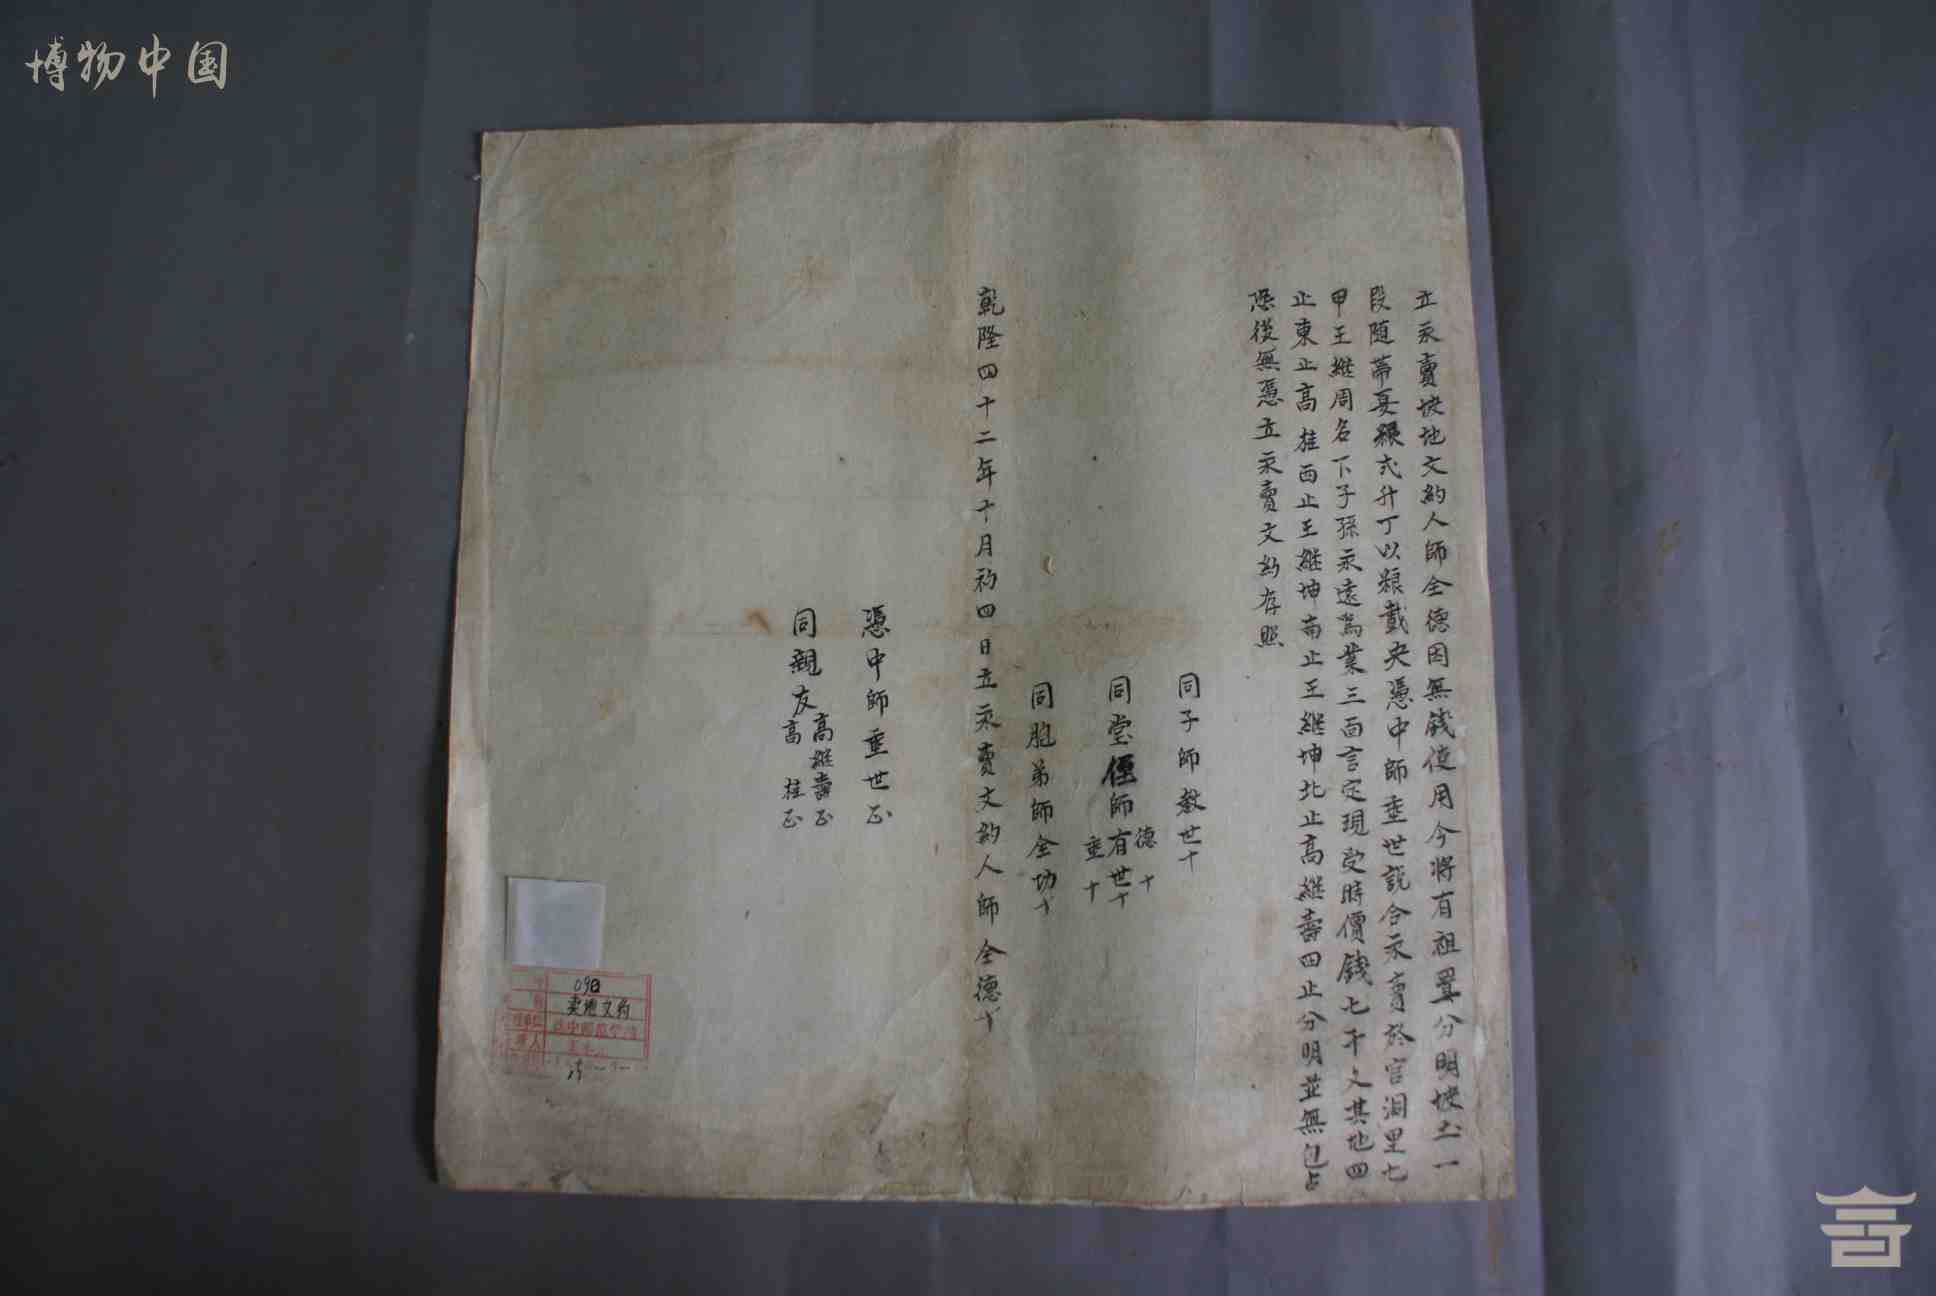 博物中国
立永賣坡地文約人師全德因無錢使用今將有祖置分明坡土一
段随蒂夏粮弍升丁以粮載央憑中師垂世説合永賣於官洄里七
甲王継周名下子孫永遠爲業三面言定現受時價錢七千文其地四
止東止高桂西止王継坤南止王継坤北止高継壽四止分明並無包占
恐後無憑立永賣文約存照
同子師教世十
同堂侄師有世十
德十
垂十
同胞弟師全功十
乾隆四十二年十月初四日立永賣文約人師全德十
憑中師垂世正
同親友高継壽正
高桂正
090
卖地文约